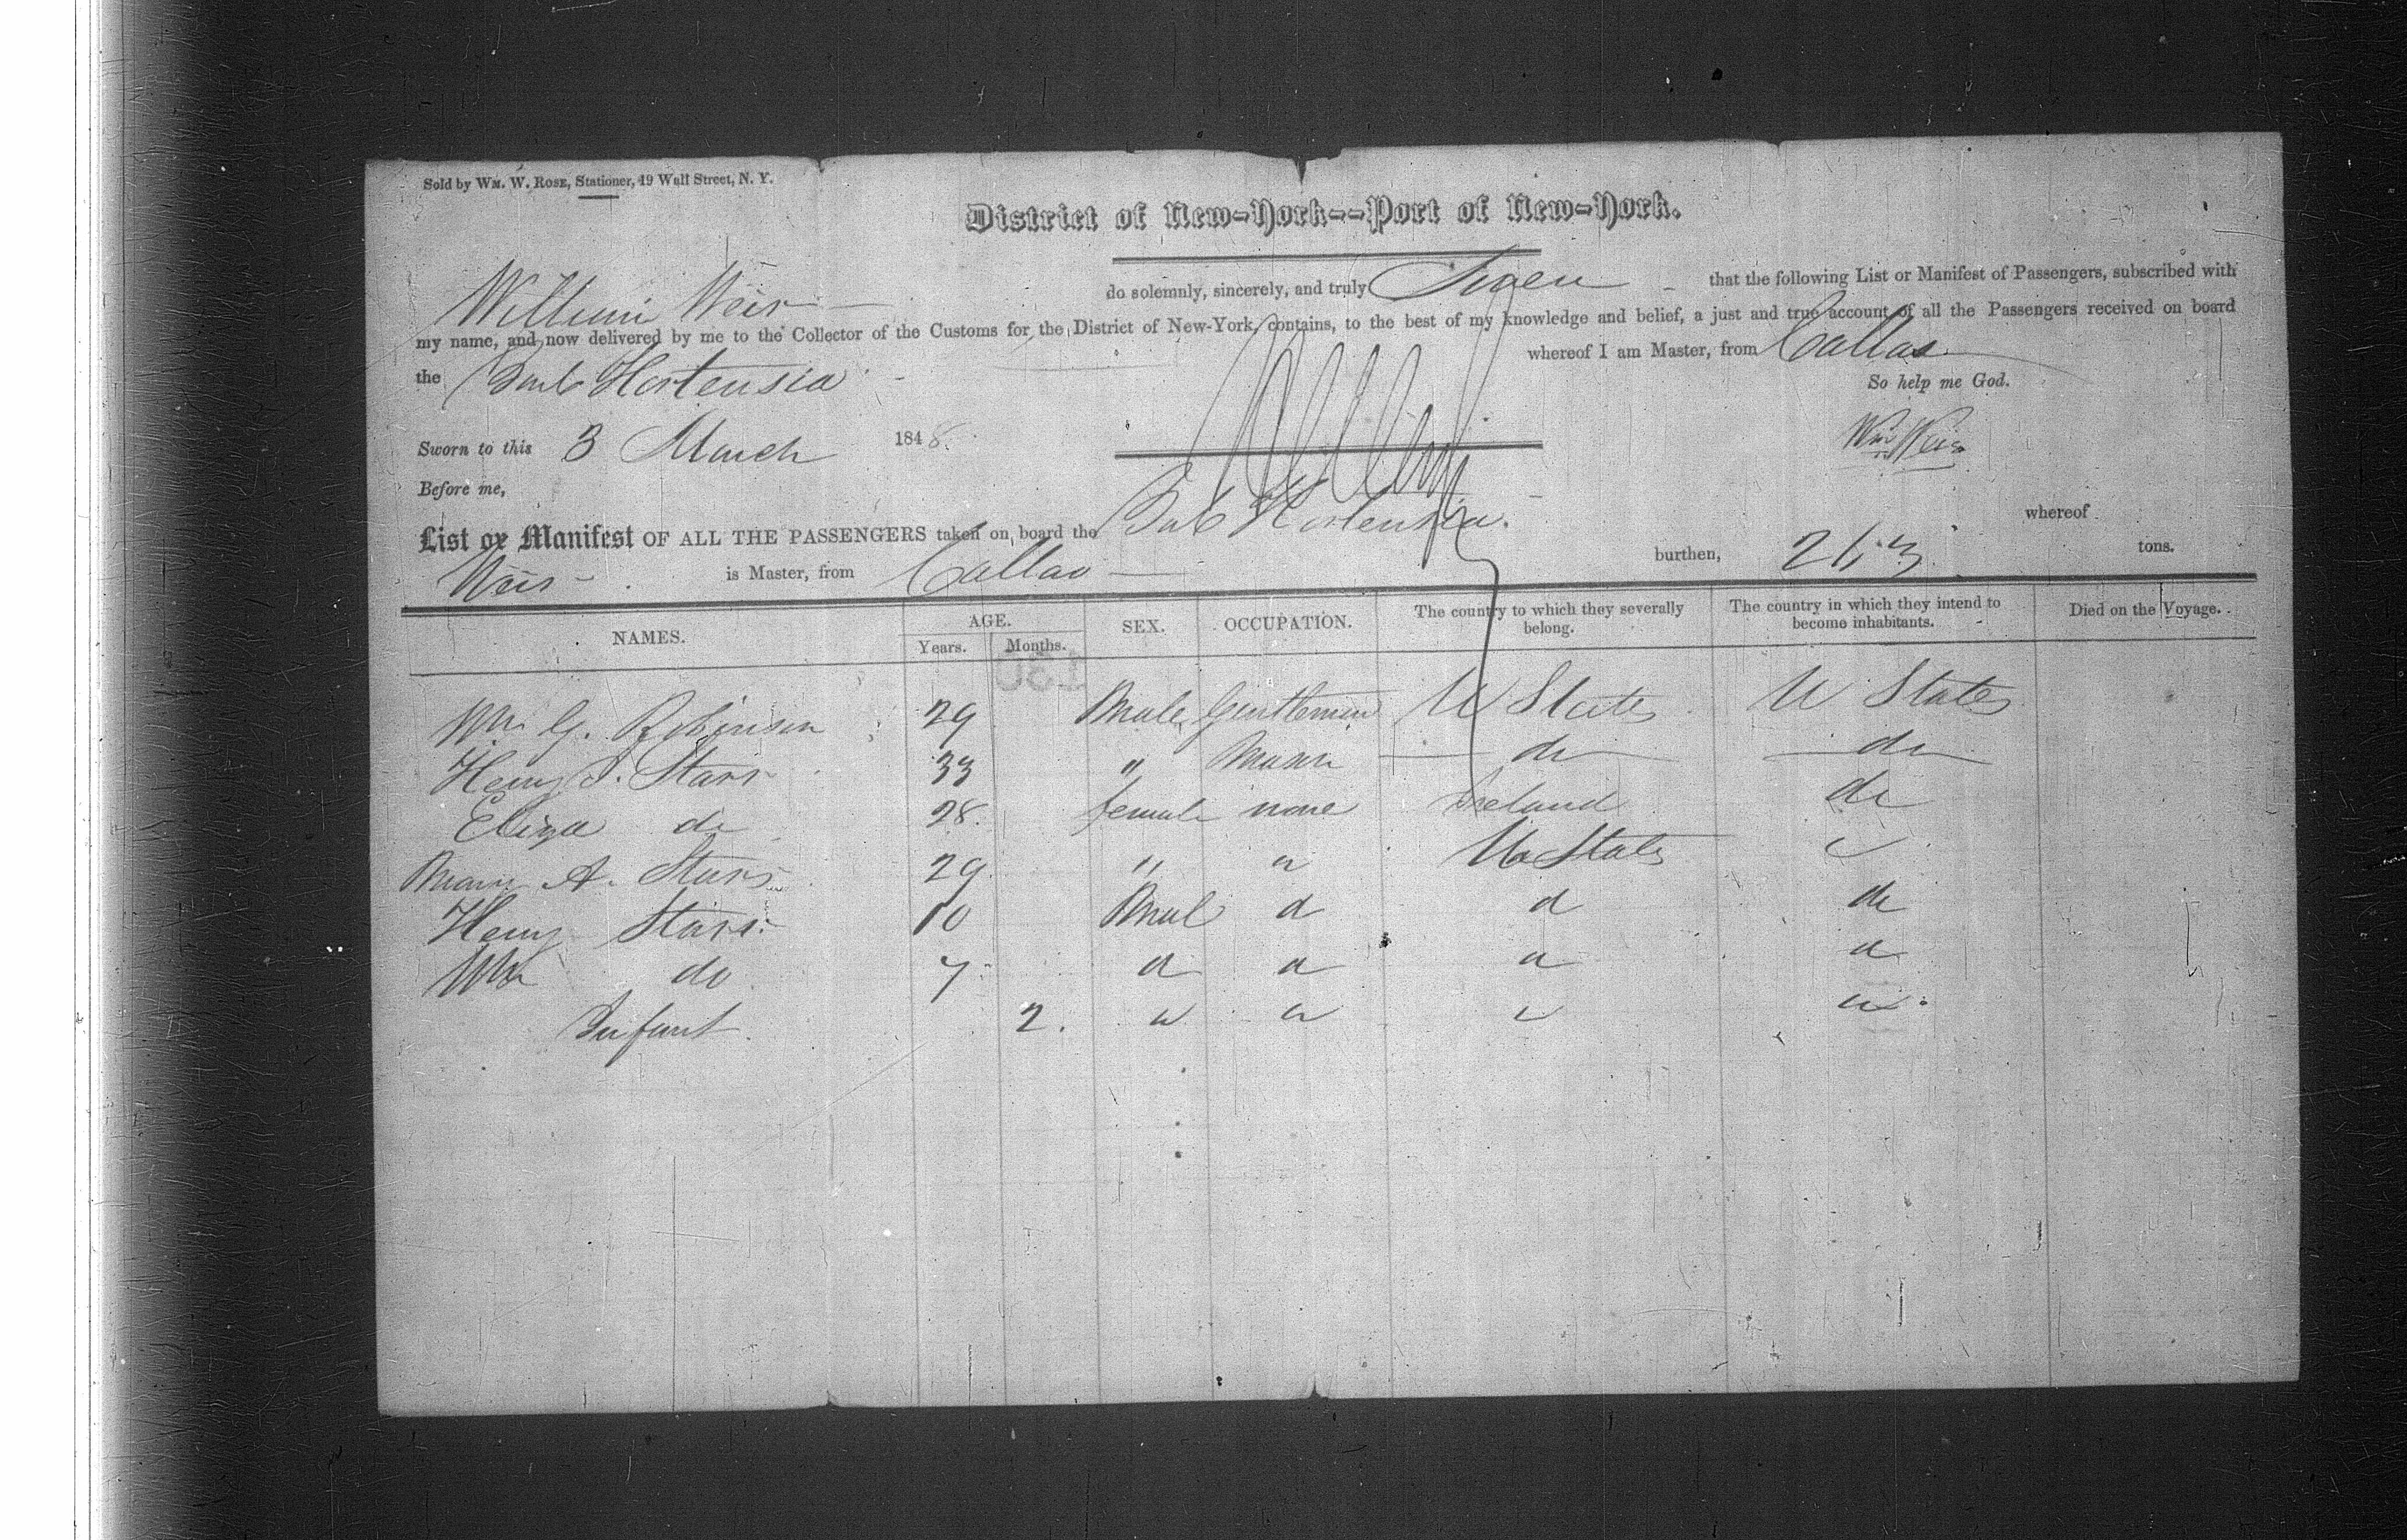 Sold by WM. W. ROSE, Stationer, 49 Wall Street, N. Y.
District of New-York--Port of New-York.
William Weir do solemnly, sincerely, and truly Swear that the following List or Manifest of Passengers, subscribed with
my name, and now delivered by me to the Collector of the Customs for the District of New-York, contains, to the best of my knowledge and belief, a just and true account of all the Passengers received on board
the Bark Hortensia whereof I am Master, from Callao
So help me God.
Sworn to this 3 March 1848. Wm Weir
Before me,
List or Manifest OF ALL THE PASSENGERS taken on board the Bark Hortensia. whereof
Weir is Master, from Callao burthen, 263 tons.
NAMES. AGE. SEX. OCCUPATION. The country to which they severally belong. The country in which they intend to become inhabitants. Died on the Voyage.
Years. Months.
130
Wm G. Robinson 29 Male Gentleman U States U States
Henry Starr 33 " do do
Eliza do 28. female none Ireland do
Mary A. Starr 29. " " U States "
Henry Starr 10 Mal d d do
Wm do 7 d d d d
Infant. 2. " " " "